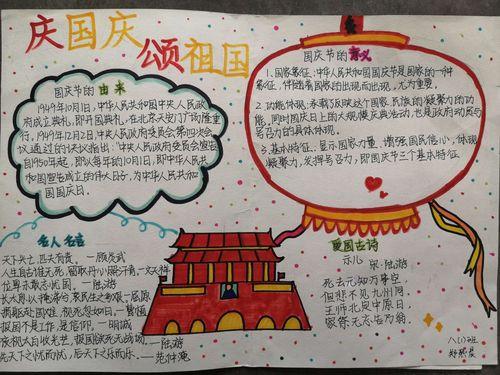 庆国庆
颂祖国
国庆节的由来
1949年10月1日,中华人民共和国中央人民政
府成立典礼,即开国典礼,在北京天安门广场隆重
行。1949年12月2日,中央人民政府委员会第四次会
议通过的决议指出:"中央人民政府委员会宣告
自1950年起,即以每年的10月1日,即中华人民共
和国宣告成立的伟大日子,为中华人民共和
国国庆日。
国庆节的意义
1、国家象征:中华人民共和国国庆节是国家的一种
象征,伴随着国家的出现而出现,尤为重要
2、功能体现:承载了反映这个国家、民族的凝聚力的功
能,同时国庆日上的大规模庆典活动,也是政府动员与
号召力的具体体现。
3、基本特征:显示国家力量,增强国民信心,体现
凝聚力,发挥号召力,即国庆节三个基本特征
名人名言
天下兴亡,匹夫有责。—顾炎武
人生自古谁无死,留取丹心照汗青。—文天祥
位卑未敢忘忧国。—陆游
长太息以掩涕兮,哀民生之多艰。—屈原
捐躯赴国难,视死忽如归。—曹植
报国
—陆游
先天下之忧而忧,后天下之乐而乐。
—范仲淹
爱国古诗
示儿 宋·陆游
死去元知万事空,
但悲不见九州同
王师北定中原日,
家祭无忘告乃翁。
八(1)班